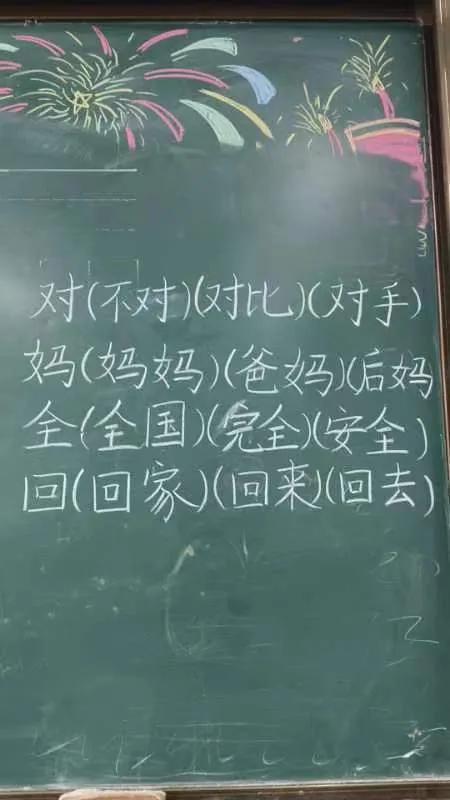 对(不对)(对比)(对手)
妈(妈妈)(爸妈)(后妈
全(全国)(完全)(安全)
回(回家)(回来)(回去)